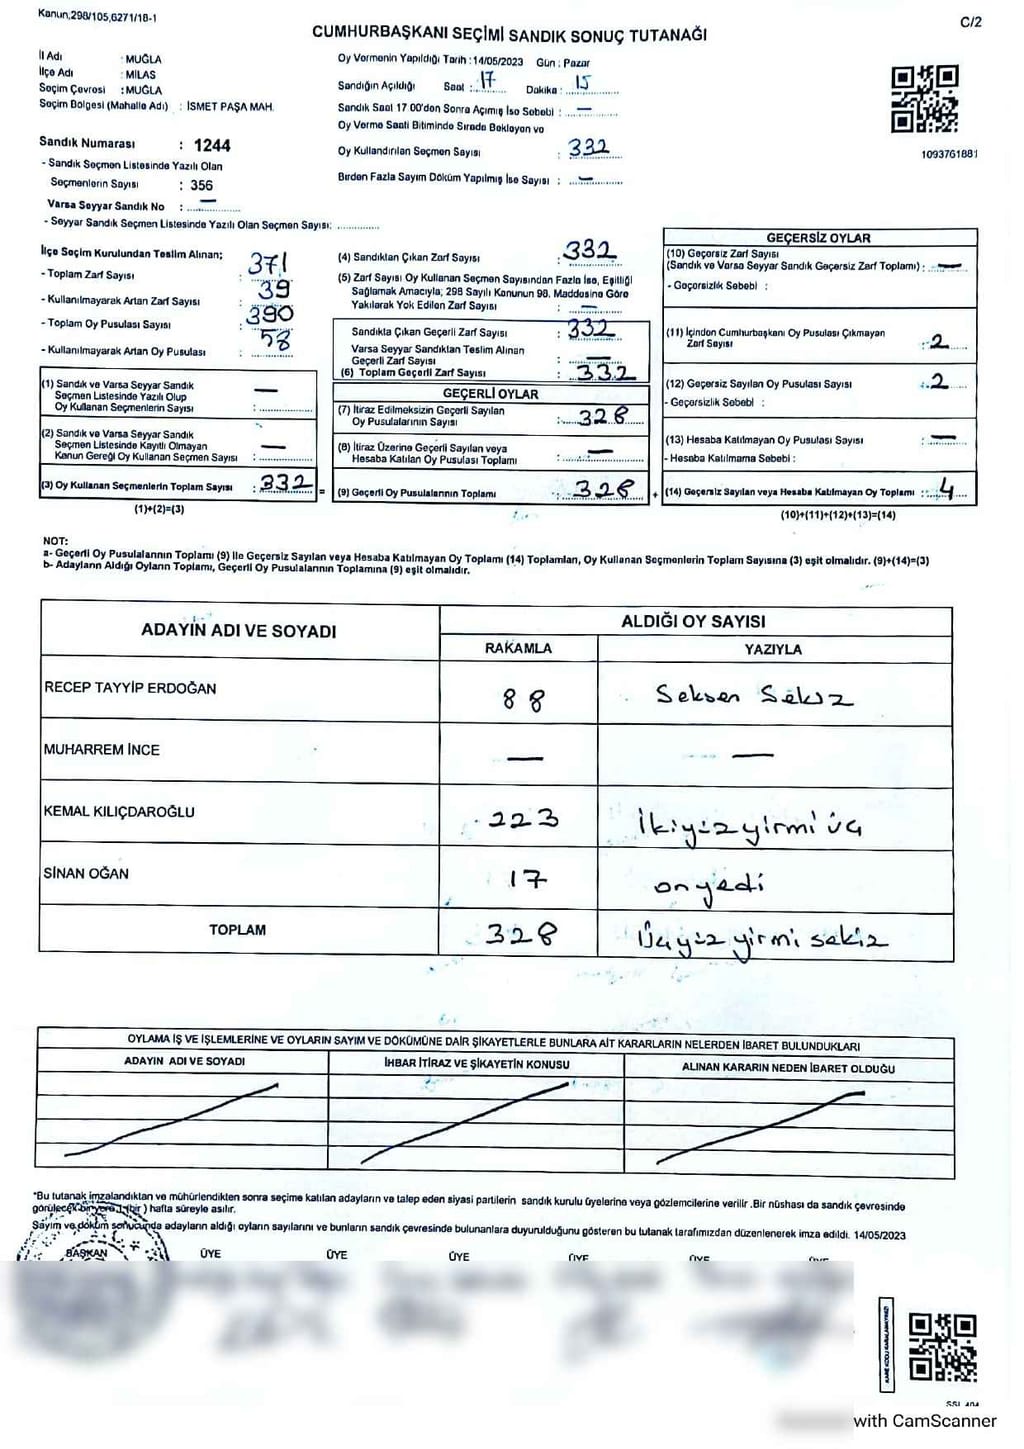 Kanun,298/105,6271/18-1
C/2
CUMHURBAŞKANI SEÇİMİ SANDIK SONUÇ TUTANAĞI
İl Adı : MUĞLA
İlçe Adı : MİLAS
Seçim Çevresi : MUĞLA
Seçim Bölgesi (Mahalle Adı) : İSMET PAŞA MAH.
Sandık Numarası : 1244
- Sandık Seçmen Listesinde Yazılı Olan
Seçmenlerin Sayısı : 356
Varsa Seyyar Sandık No : —
- Seyyar Sandık Seçmen Listesinde Yazılı Olan Seçmen Sayısı:
Oy Vermenin Yapıldığı Tarih : 14/05/2023 Gün : Pazar
Sandığın Açıldığı Saat : 17 Dakika : 15
Sandık Saat 17 00'den Sonra Açılmış İse Sebebi : —
Oy Verme Saati Bitiminde Sırada Bekleyen ve
Oy Kullandırılan Seçmen Sayısı : 332
Birden Fazla Sayım Döküm Yapılmış İse Sayısı : —
1093761881
İlçe Seçim Kurulundan Teslim Alınan;
- Toplam Zarf Sayısı : 371
- Kullanılmayarak Artan Zarf Sayısı : 39
- Toplam Oy Pusulası Sayısı : 390
- Kullanılmayarak Artan Oy Pusulası : 58
(1) Sandık ve Varsa Seyyar Sandık
Seçmen Listesinde Yazılı Olup
Oy Kullanan Seçmenlerin Sayısı : —
(2) Sandık ve Varsa Seyyar Sandık
Seçmen Listesinde Kayıtlı Olmayan
Kanun Gereği Oy Kullanan Seçmen Sayısı : —
(3) Oy Kullanan Seçmenlerin Toplam Sayısı : 332 =
(1)+(2)=(3)
(4) Sandıktan Çıkan Zarf Sayısı : 332
(5) Zarf Sayısı Oy Kullanan Seçmen Sayısından Fazla İse, Eşitliği
Sağlamak Amacıyla; 298 Sayılı Kanunun 98. Maddesine Göre
Yakılarak Yok Edilen Zarf Sayısı : —
Sandıkta Çıkan Geçerli Zarf Sayısı : 332
Varsa Seyyar Sandıktan Teslim Alınan
Geçerli Zarf Sayısı : —
(6) Toplam Geçerli Zarf Sayısı : 332
GEÇERLİ OYLAR
(7) İtiraz Edilmeksizin Geçerli Sayılan
Oy Pusulalarının Sayısı : 328
(8) İtiraz Üzerine Geçerli Sayılan veya
Hesaba Katılan Oy Pusulası Toplamı : —
(9) Geçerli Oy Pusulalarının Toplamı : 328 +
GEÇERSİZ OYLAR
(10) Geçersiz Zarf Sayısı
(Sandık ve Varsa Seyyar Sandık Geçersiz Zarf Toplamı) : —
- Geçersizlik Sebebi :
(11) İçinden Cumhurbaşkanı Oy Pusulası Çıkmayan
Zarf Sayısı : 2
(12) Geçersiz Sayılan Oy Pusulası Sayısı : 2
- Geçersizlik Sebebi :
(13) Hesaba Katılmayan Oy Pusulası Sayısı : —
- Hesaba Katılmama Sebebi :
(14) Geçersiz Sayılan veya Hesaba Katılmayan Oy Toplamı : 4
(10)+(11)+(12)+(13)=(14)
NOT:
a- Geçerli Oy Pusulalarının Toplamı (9) ile Geçersiz Sayılan veya Hesaba Katılmayan Oy Toplamı (14) Toplamları, Oy Kullanan Seçmenlerin Toplam Sayısına (3) eşit olmalıdır. (9)+(14)=(3)
b- Adayların Aldığı Oyların Toplamı, Geçerli Oy Pusulalarının Toplamına (9) eşit olmalıdır.
ADAYIN ADI VE SOYADI
ALDIĞI OY SAYISI
RAKAMLA YAZIYLA
RECEP TAYYİP ERDOĞAN 88 Seksen Sekiz
MUHARREM İNCE — —
KEMAL KILIÇDAROĞLU 223 İkiyüz yirmi üç
SİNAN OĞAN 17 onyedi
TOPLAM 328 Üçyüz yirmi sekiz
OYLAMA İŞ VE İŞLEMLERİNE VE OYLARIN SAYIM VE DÖKÜMÜNE DAİR ŞİKAYETLERLE BUNLARA AİT KARARLARIN NELERDEN İBARET BULUNDUKLARI
ADAYIN ADI VE SOYADI İHBAR İTİRAZ VE ŞİKAYETİN KONUSU ALINAN KARARIN NEDEN İBARET OLDUĞU
*Bu tutanak imzalandıktan ve mühürlendikten sonra seçime katılan adayların ve talep eden siyasi partilerin sandık kurulu üyelerine veya gözlemcilerine verilir .Bir nüshası da sandık çevresinde
görülecek bir yere 1 (bir ) hafta süreyle asılır.
Sayım ve döküm sonucunda adayların aldığı oyların sayılarını ve bunların sandık çevresinde bulunanlara duyurulduğunu gösteren bu tutanak tarafımızdan düzenlenerek imza edildi. 14/05/2023
BAŞKAN ÜYE ÜYE ÜYE ÜYE ÜYE ÜYE
with CamScanner